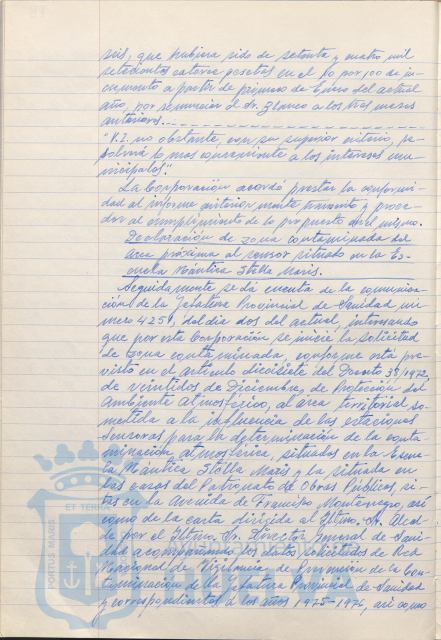 seis, que hubiera sido de setenta y cuatro mil
setecientos catorce pesetas en el 50 por 100 de in-
cremento a partir de primero de Enero del actual
año, por renunciar el Sr. Blanco a los tres meses
anteriores.
"V.I. no obstante, con su superior criterio, re-
solverá lo mas conveniente a los intereses mu-
nicipales".
La Corporación acordó prestar la conformi-
dad al informe anteriormente transcrito y proce-
der al cumplimiento de lo propuesto en el mismo.
Declaración de zona contaminada del
área próxima al sensor situado en la Es-
cuela Náutica Stella Maris.
Seguidamente se dá cuenta de la comunica-
ción de la Jefatura Provincial de Sanidad nú-
mero 4259, del día dos del actual, interesando
que por esta Corporación se inicie la solicitud
de zona contaminada, conforme está pre-
visto en el artículo diecisiete del Decreto 38/1972,
de veintidos de Diciembre, de Protección del
Ambiente Atmosférico, al área territorial so-
metida a la influencia de las estaciones
sensoras para la determinación de la conta-
minación atmosférica, situados en la Escue-
la Náutica Stella Maris y la situada en
las casas del Patronato de Obras Públicas, si-
tas en la Avenida de Francisco Montenegro, así
como de la carta dirigida al Iltmo. Sr. Alcal-
de por el Iltmo. Sr. Director General de Sani-
dad acompañando los datos solicitados de Red
Nacional de Vigilancia de Previsión de la Con-
taminación de la Jefatura Provincial de Sanidad
y correspondientes a los años 1975-1976, así como
PORTUS MARIS
ET TERRAE